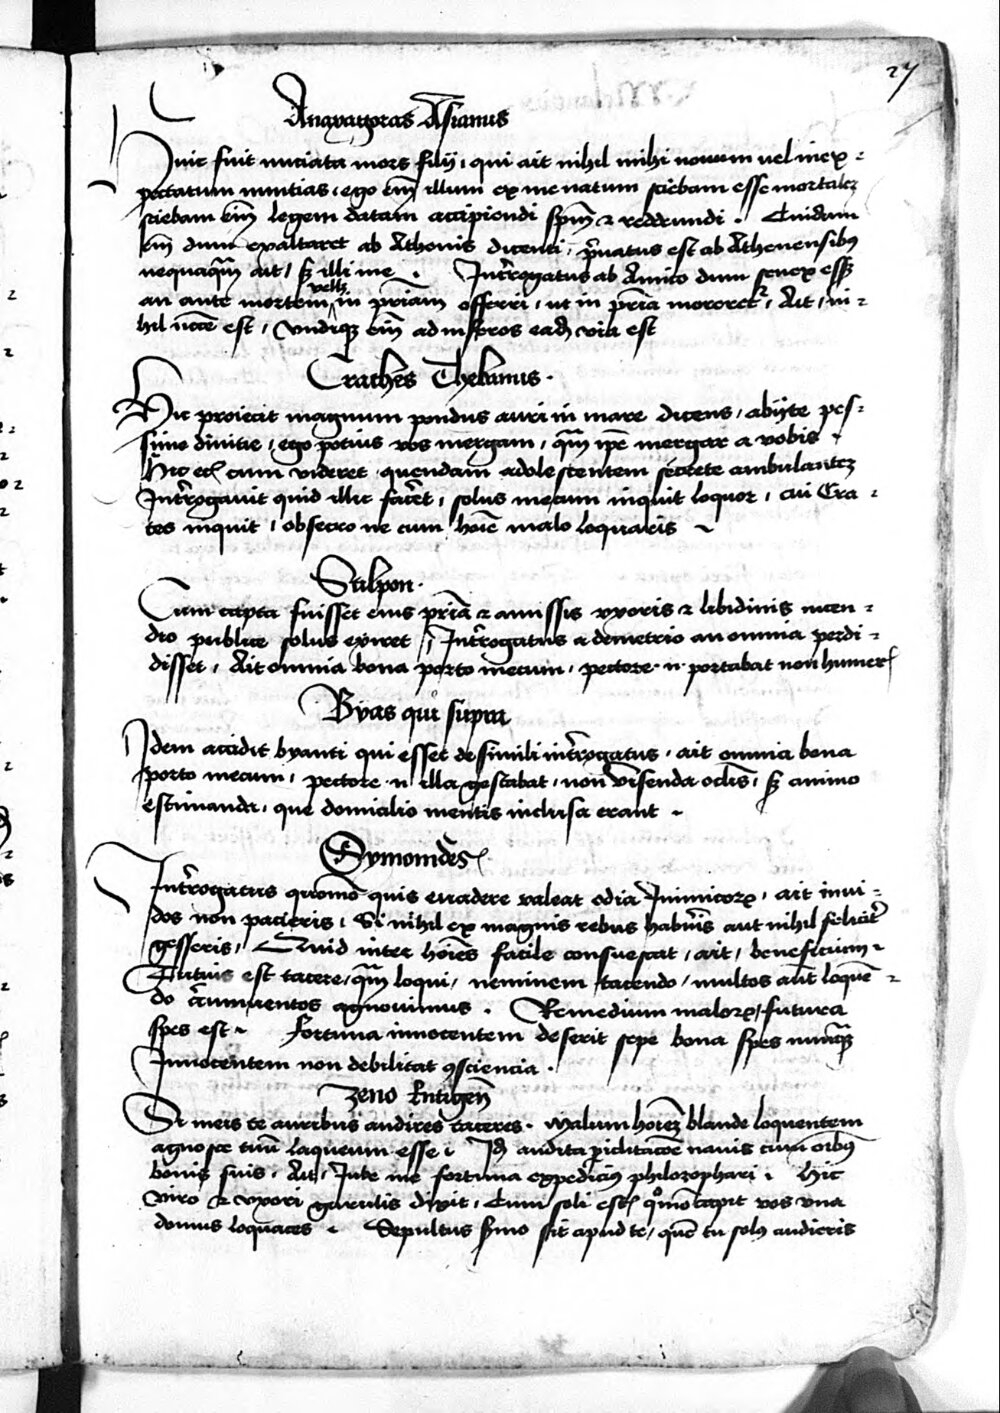 27
Anaxagoras Asianus
Huic fuit nuciata mors filij, qui ait nihil mihi novum vel inex=
pectatum nuntias, ego em̄ illum ex me natum sciebam esse mortalez
sciebam em̄ legem datam accipiendi spm̄ & reddendi. Cuidam
em̄ dum exaltaret ab Athenis dicenti, p̄vatus est ab Atheniensibꝰ
nequaq̄m ait, sꝫ illi me. Int̄rogatus ab Amico dum senex essꝫ
an ante mortem vellꝫ in p̄riam offerri, ut in p̄ria moreret², Ait, ni=
hil nc̄ce est, Undiqꝫ em̄ ad inferos eadꝫ via est
Crathēs Thebanus.
Hic proiecit magnum pondus auri in mare dicens, abijte pes=
sime divitie, ego potius vos mergam, q̄m ip̄e mergar a vobis
Hic ec̄ cum videret quendam adolescentem secrete ambulantez
Int̄rogavit quid illic fac̄ret, solus mecum inquit loquor, cui Cra=
tes inquit, obsecro ne cum hoīe malo loquaris
Stilpon.
Cum capta fuisset eius p̄ria & amissis uxoris & libidinis incen=
dio publice solus exiret, Int̄rogatus a demetrio an omnia perdi=
disset, Ait omnia bona porto mecum, pectore .n. portabat non humeris
Byas qui supra
Idem accidit byanti qui esset de simili int̄rogatus, ait omnia bona
porto mecum, pectore .n. illa gestabat, non visenda oc̄lis, sꝫ animo
estimanda, que domicilio mentis inclusa erant
Symonides
Int̄rogatus quomō quis evadere valeat odia Inimicorꝝ, ait invi=
dos non pacieris, Si nihil ex magnis rebus habūis aut nihil felicit̄
gesseris, Quid inter hoīes facile consuescat, ait, beneficium
Tutius est tacere, q̄m loqui, neminem tacendo, multos aūt loquē=
do c̄cumventos agnovimus. Remedium malorꝝ, futura
spes est Fortuna innocentem deserit sepe bona spes nunq̄m
Innocentem non debilitat ꝯsciencia.
Zeno
Si meis te auribus audires taceres. Malum hoīeꝫ blande loquentem
agnosce tuū laqueum esse. Idꝫ audita piclitacōe navis cum oībꝰ
bonis suis, Ait, Iube me fortuna expediciꝰ philozophari. Hic
viro & uxori garrulis dixit, Cum soli estꝭ quō capit vos una
domus loquaces Sepultus smo sit apud te, quē tu solꝰ audieris